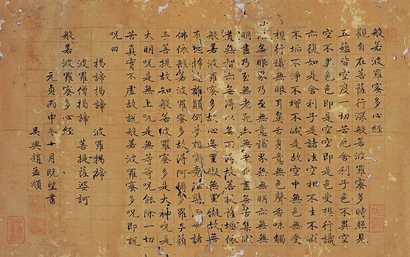 般若波羅蜜多心經
觀自在菩薩行深般若波羅蜜多時照見
五蘊皆空度一切苦厄舍利子色不異空
空不異色色即是空空即是色受想行識
亦復如是舍利子是諸法空相不生不滅
不垢不淨不增不減是故空中無色無受
想行識無眼耳鼻舌身意無色聲香味觸
法無眼界乃至無意識界無無明亦無無
明盡乃至無老死亦無老死盡無苦集滅
道無智亦無得以無所得故菩提薩埵依
般若波羅蜜多故心無罣礙無罣礙故無
有恐怖遠離顛倒夢想究竟涅槃三世諸
佛依般若波羅蜜多故得阿耨多羅三藐
三菩提故知般若波羅蜜多是大神呪是
大明呪是無上呪是無等等呪能除一切
苦真實不虛故說般若波羅蜜多呪即說
呪曰
揭諦揭諦 波羅揭諦
波羅僧揭諦 菩提薩婆訶
般若波羅蜜多心經
元貞丙申冬十月既望書
吳興趙孟頫